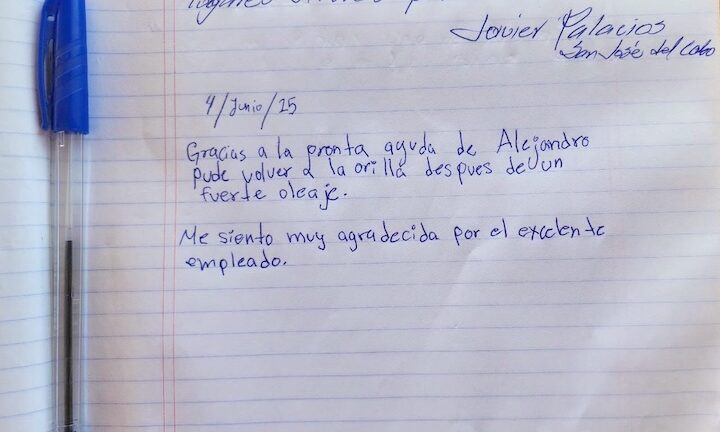 Javier Palacios
San José del Cabo
4/Junio/25
Gracias a la pronta ayuda de Alejandro
pude volver a la orilla despues de un
fuerte oleaje.
Me siento muy agradecida por el excelente
empleado.